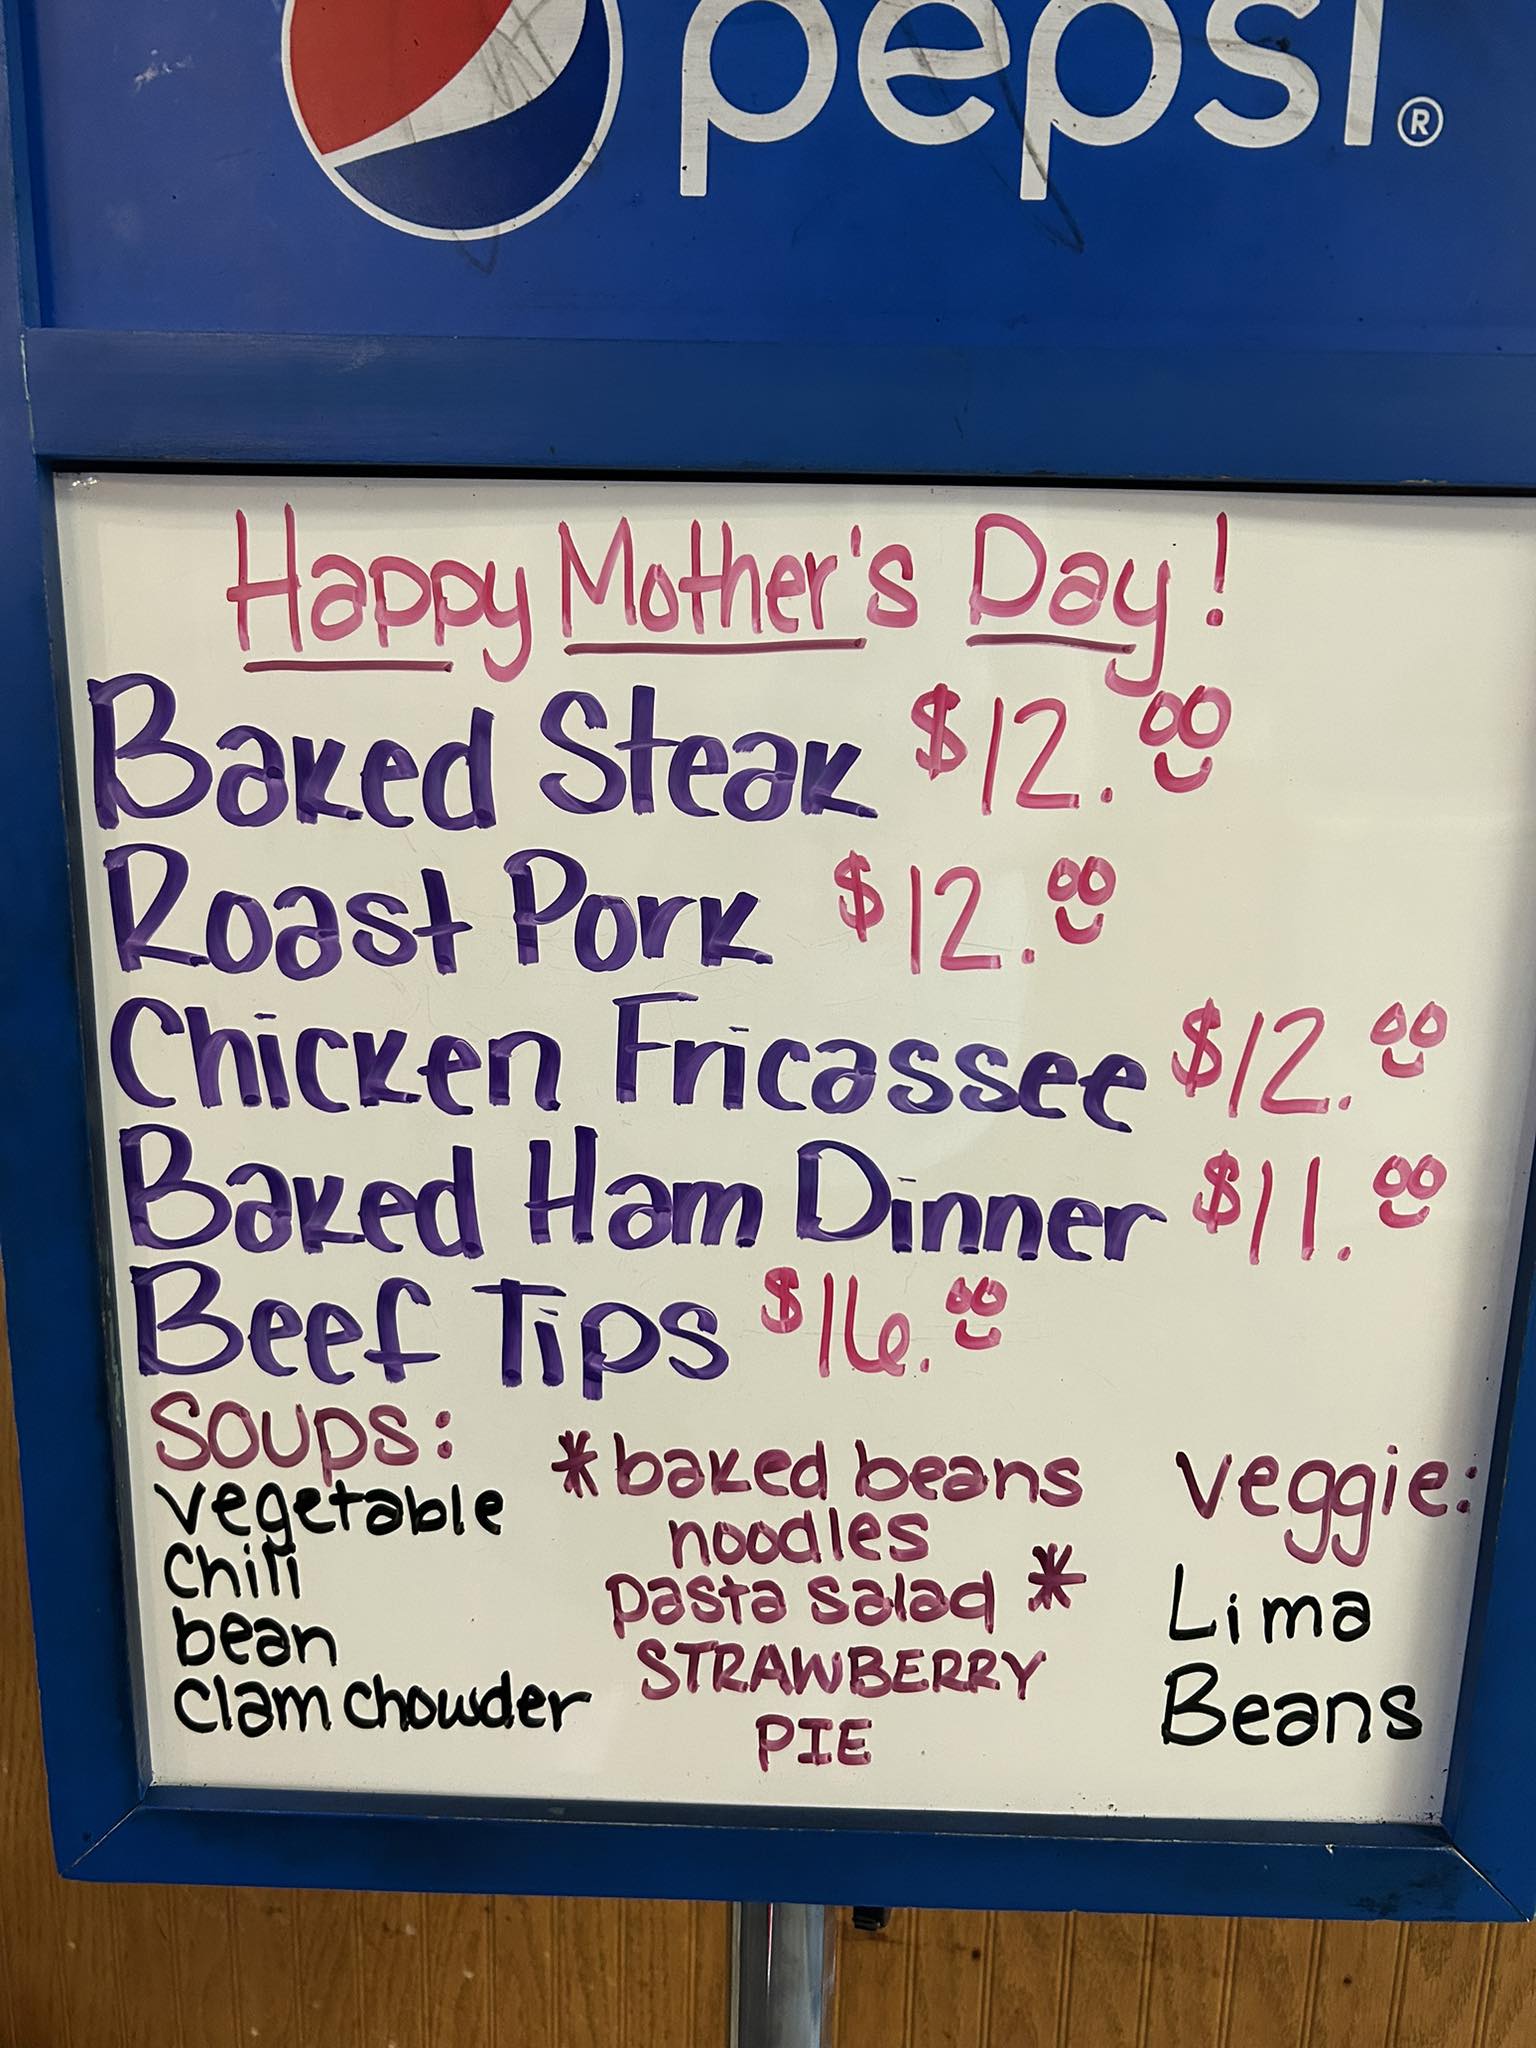 pepsi®
Happy Mother's Day!
Baked Steak $12.00
Roast Pork $12.00
Chicken Fricassee $12.00
Baked Ham Dinner $11.00
Beef Tips $16.00
Soups:
vegetable
Chili
bean
Clam chowder
*baked beans
noodles
pasta salad *
STRAWBERRY
PIE
Veggie:
Lima
Beans